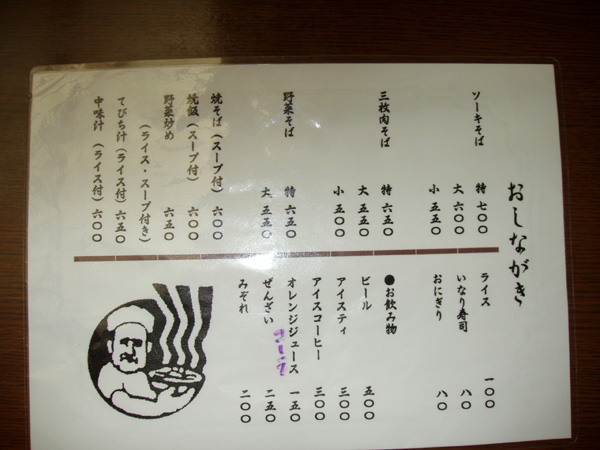 おしながき
ソーキそば 特 七〇〇
大 六〇〇
小 五五〇
三枚肉そば 特 六五〇
大 五五〇
小 五〇〇
野菜そば 特 六五〇
大 五五〇
焼そば(スープ付) 六〇〇
焼飯(スープ付) 六〇〇
野菜炒め 六五〇
(ライス・スープ付き)
てびち汁(ライス付) 六五〇
中味汁(ライス付) 六〇〇
ライス 一〇〇
いなり寿司 八〇
おにぎり 八〇
●お飲み物
ビール 五〇〇
アイスティ 三〇〇
アイスコーヒー 三〇〇
オレンジジュース 一五〇
コーラ
ぜんざい 二五〇
みぞれ 二〇〇